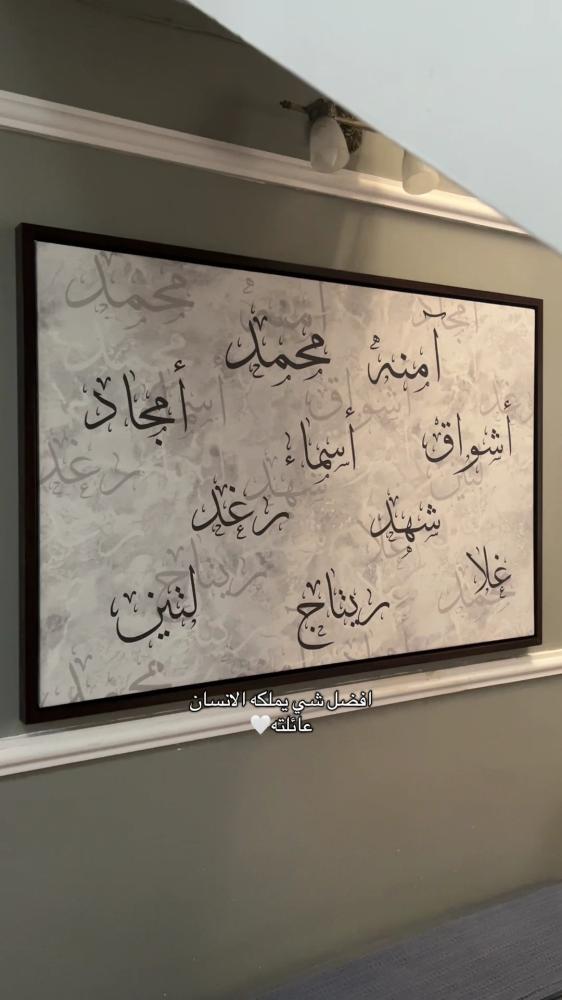 محمد آمنه
أمجاد
أسماء أشواق
رغد شهد
غلا
لتين ريتاج
افضل شي يملكه الانسان
عائلته🤍